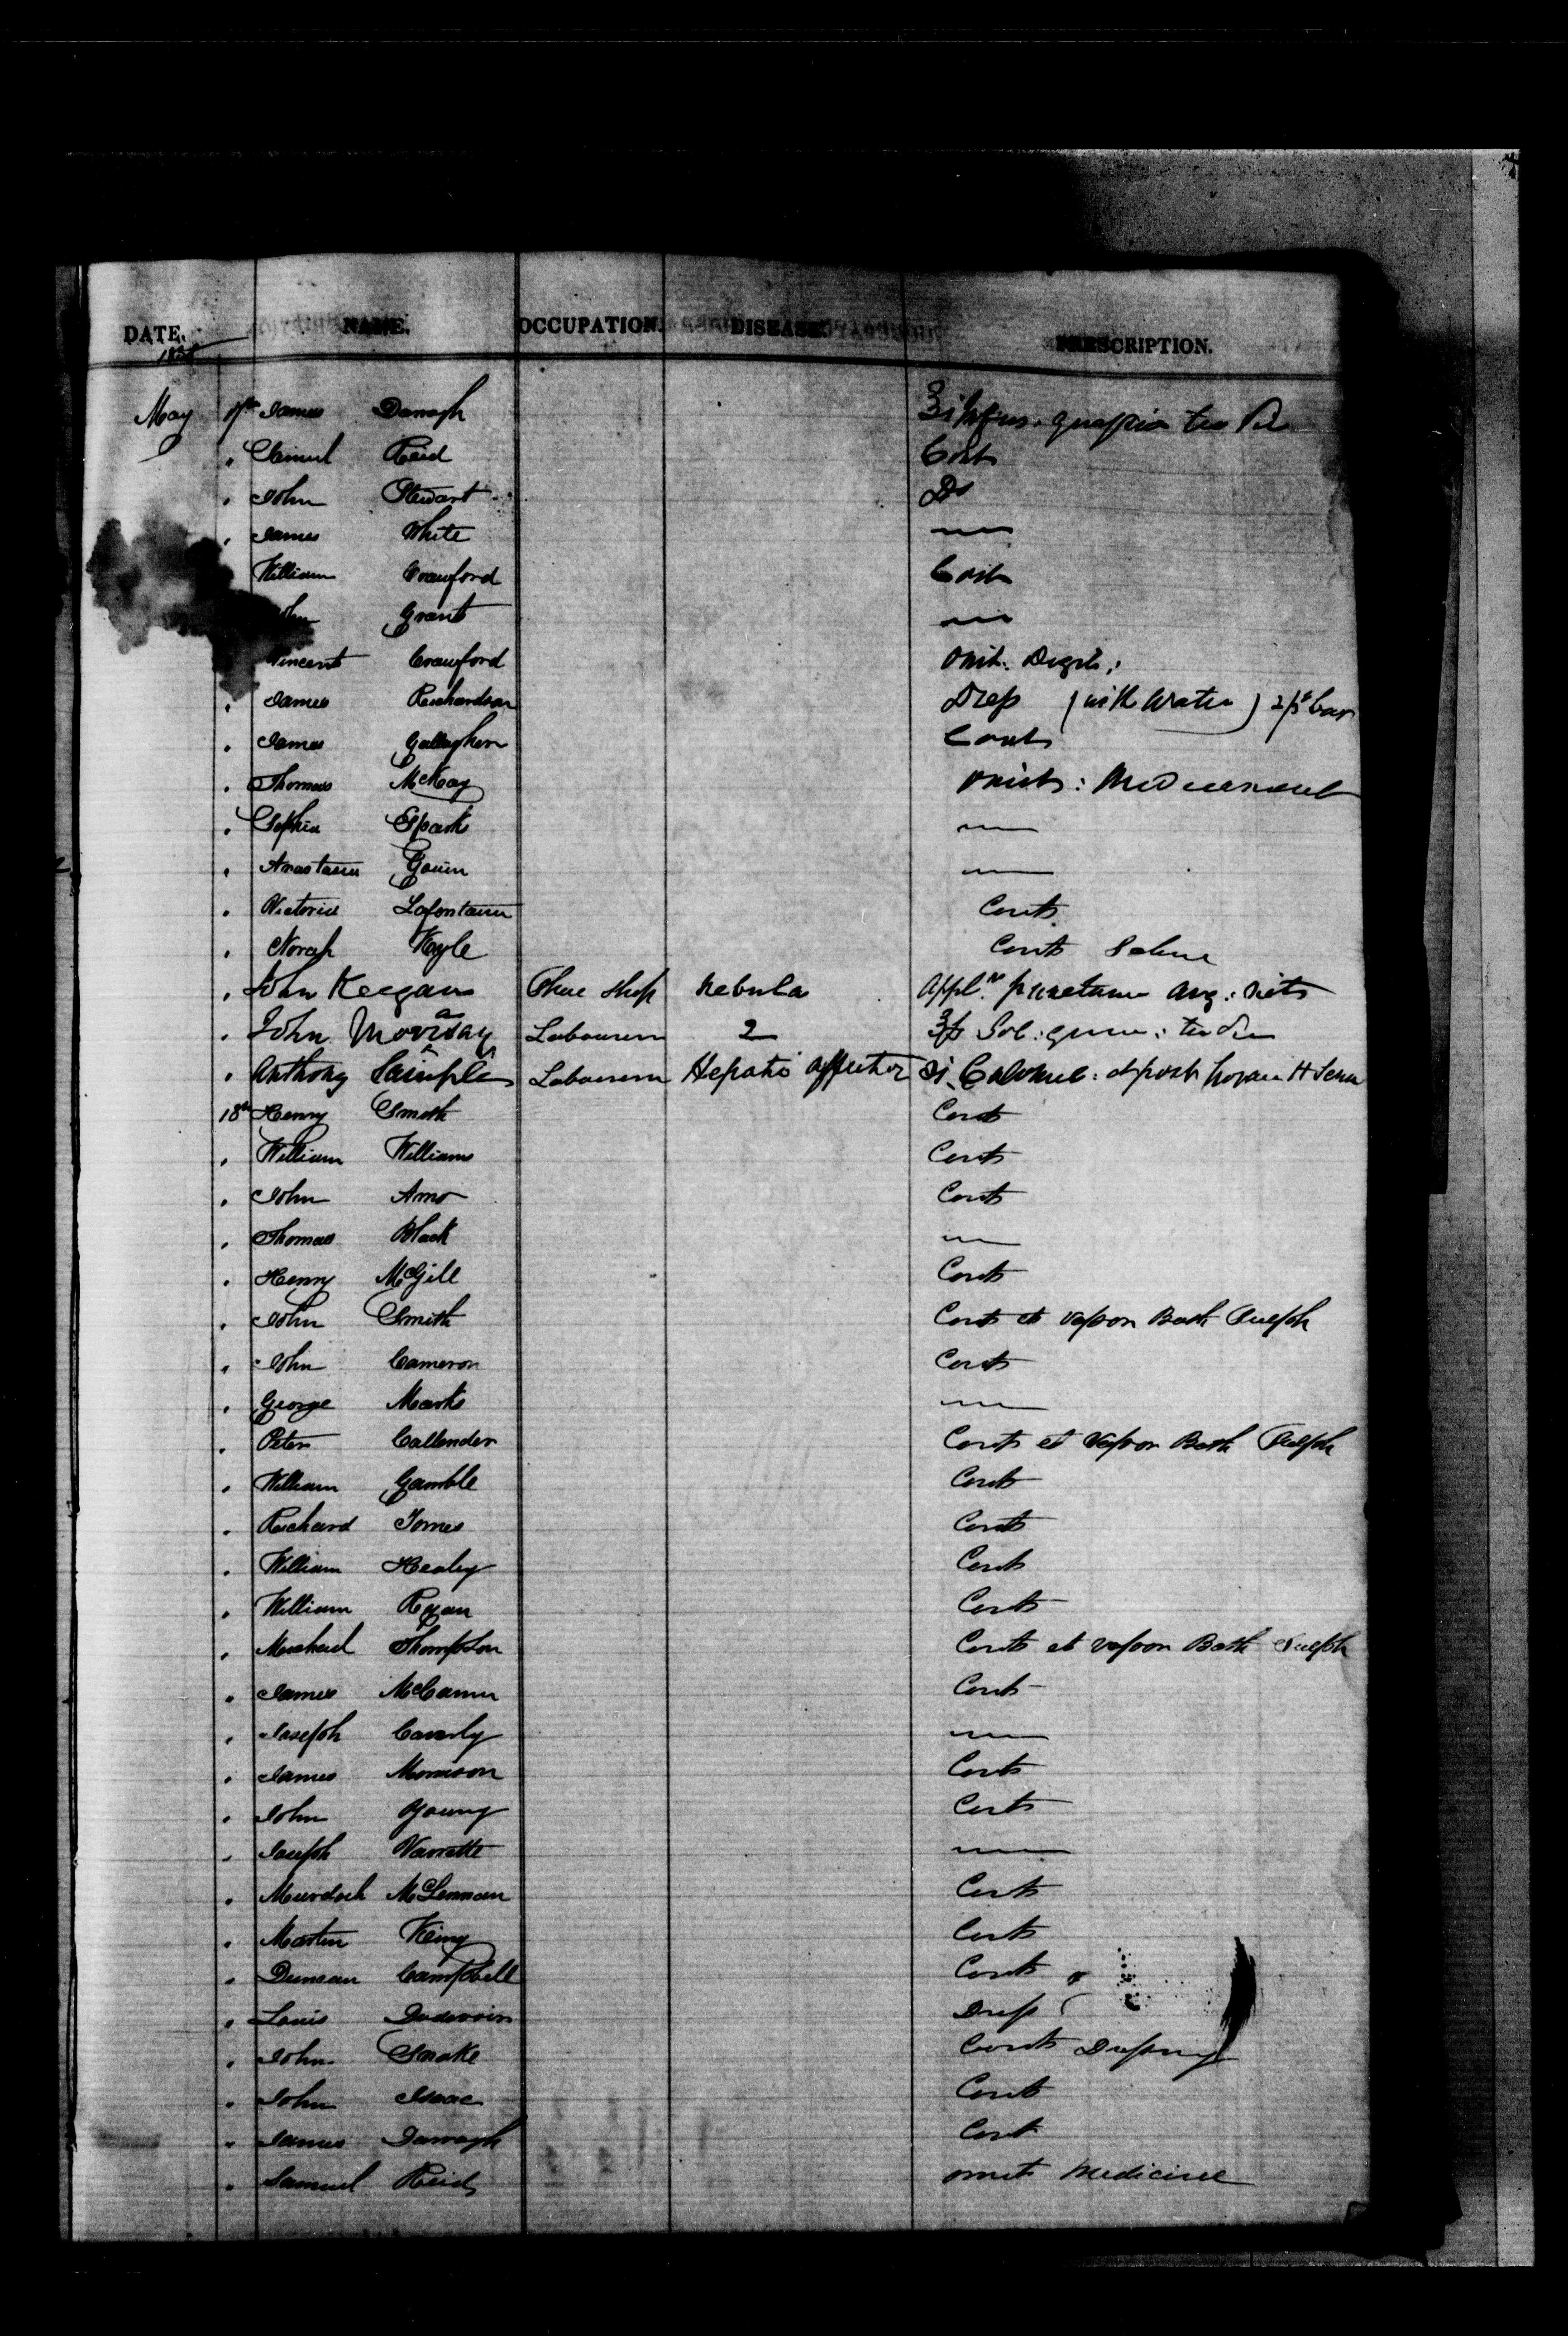 DATE. NAME. OCCUPATION. DISEASE. PRESCRIPTION.
May 17th James Darragh
" Samuel Reid Cont
" John Stewart Do
" James White —
William Crawford Cont
John Grant —
Vincent Crawford Omit
" James Richardson Drep (with Water)
" James Gallagher Cont
" Thomas McKay Omit: Medicament
" Sophia Sparks —
" Anastasia —
" Victoria Lafontain Cont
" Norah Kyle Cont
" John Keegan Shoe shop Nebula Appl.n
" John Morrisay Labourer
" Anthony Sample Labourer Hepatic affection Calomel:
18th Henry Smith Cont
" William Williams Cont
" John Amo Cont
" Thomas Black —
" Henry McGill Cont
" John Smith Cont et Vapour Bath Sulph
" John Cameron Cont
" George Marks —
" Peter Callender Cont et Vapour Bath Sulph
" William Gamble Cont
" Richard Jones Cont
" William Healey Cont
" William Ryan Cont
" Michael Thompson Cont et Vapour Bath Sulph
" James McCann Cont
" Joseph Caverly —
" James Morrison Cont
" John Young Cont
" Joseph —
" Murdoch McLennan Cont
" Martin King Cont
" Duncan Campbell Cont
" Louis Drep
" John Snake Cont
" John Isaac Cont
" James Darragh Cont
" Samuel Reid omit Medicine